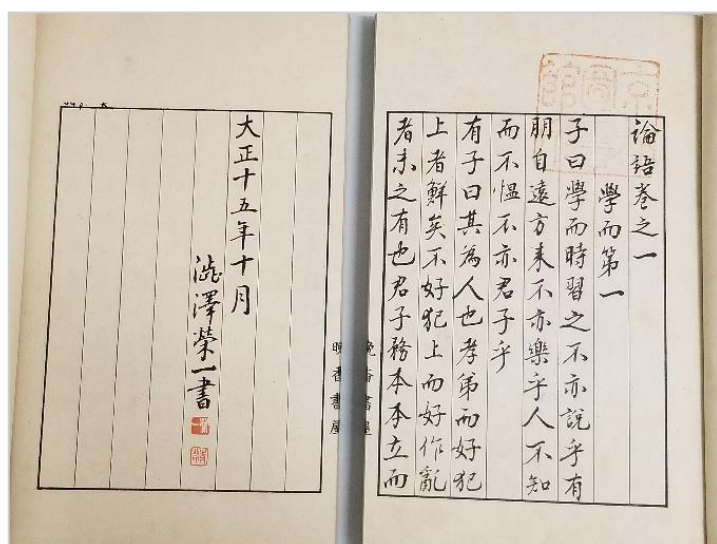 論語巻之一
學而第一
子曰學而時習之不亦說乎有
朋自遠方来不亦樂乎人不知
而不慍不亦君子乎
有子曰其為人也孝弟而好犯
上者鮮矣不好犯上而好作亂
者未之有也君子務本本立而
晩香書屋
晩香書屋
大正十五年十月
澁澤榮一書